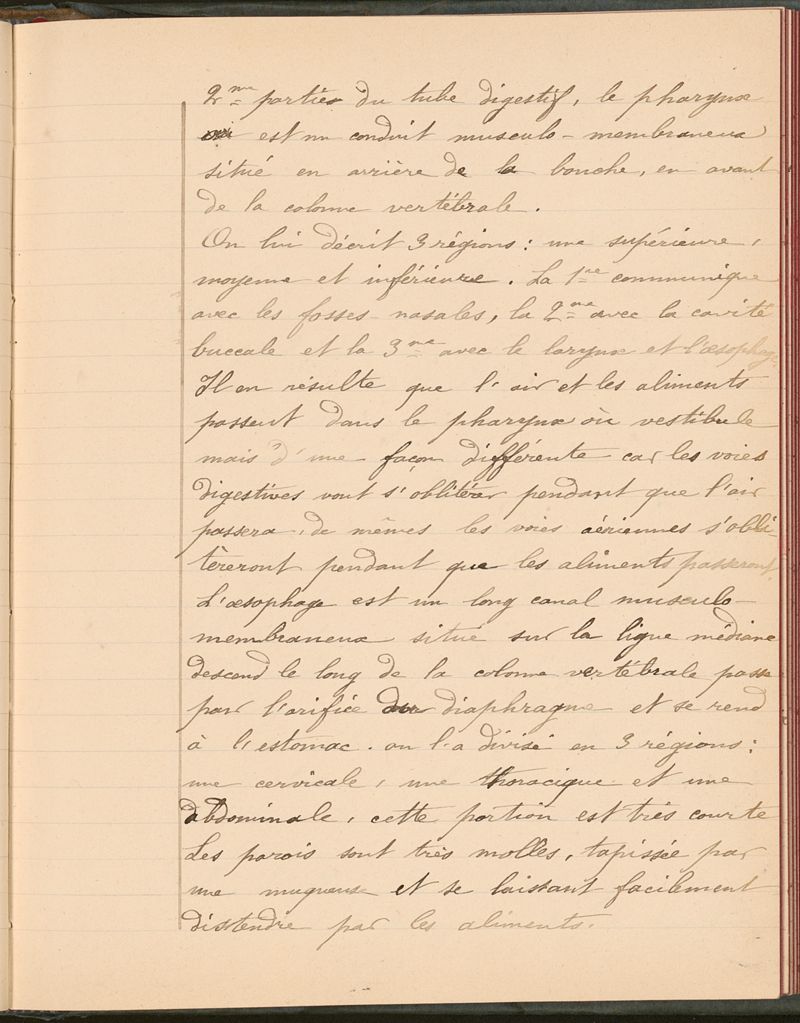 2me parties du tube digestif, le pharynx
est un conduit musculo-membraneux
situé en arrière de la bouche, en avant
de la colonne vertébrale.
On lui décrit 3 régions : une supérieure,
moyenne et inférieure. La 1re communique
avec les fosses nasales, la 2me avec la cavité
buccale et la 3me avec le larynx et l'œsophage
Il en résulte que l'air et les aliments
passent dans le pharynx où vestibule
mais d'une façon différente car les voies
digestives vont s'oblitérer pendant que l'air
passera, de mêmes les voies aériennes s'obli-
tèreront pendant que les aliments passeront.
L'œsophage est un long canal musculo-
membraneux situé sur la ligne médiane
descend le long de la colonne vertébrale passe
par l'orifice du diaphragme et se rend
à l'estomac. on l'a divisé en 3 régions :
une cervicale, une thoracique et une
abdominale, cette portion est très courte
Les parois sont très molles, tapissée par
une muqueuse et se laissant facilement
distendre par les aliments.